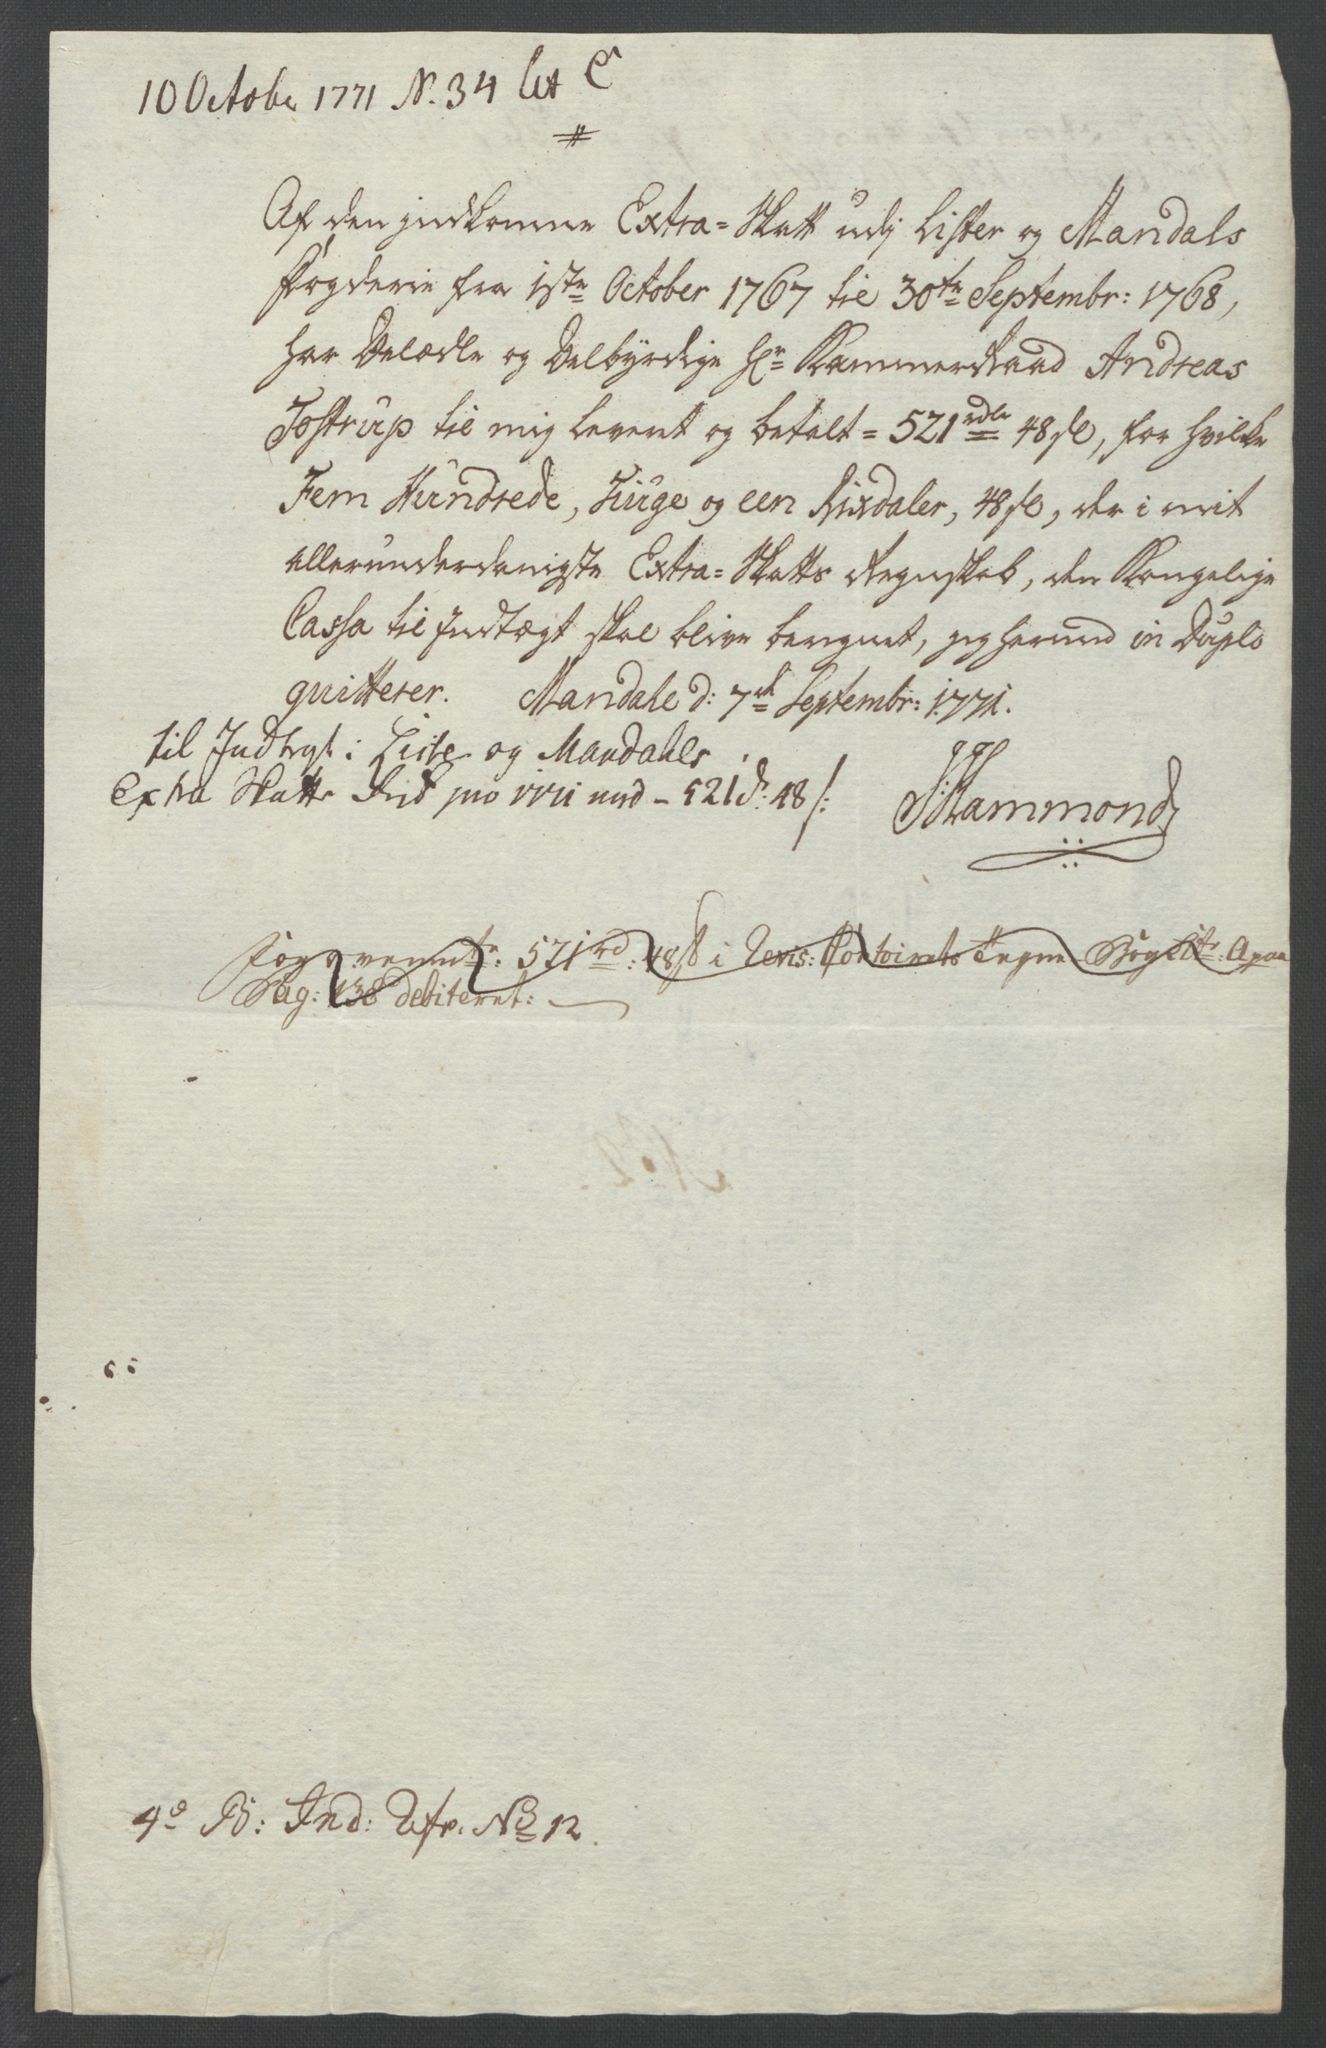 10 October 1771 N. 34 lit C
Af den indkomne Extra=Skatt udj Lister og Mandals
Fogderie fra 1ste October 1767 til 30te Septembr: 1768,
har Velædle og Velbyrdige Hr Kammerraad Andreas
Tostrup til mig leveret og betalt = 521 rdlr 48 s, for hvilke
Fem Hundrede, Tiuge og een Rixdaler, 48 s, der i mit
allerunderdanigste Extra=Skatts Regnskab, den Kongelige
Cassa til Indtægt skal blive beregnet, jeg herved in Duplo
quitterer. Mandahl d: 7de Septembr: 1771.
til Indtegt i Lister og Mandahls
Extra Skatte pro 1771 med - 521 d: 48 s:
Hammond
521 rd: 48 s i Revis: Contoirets Tegne Bog Litr: A paa
Pag: 138 debiteret:
No 2.
4o B: Ind: No 12.